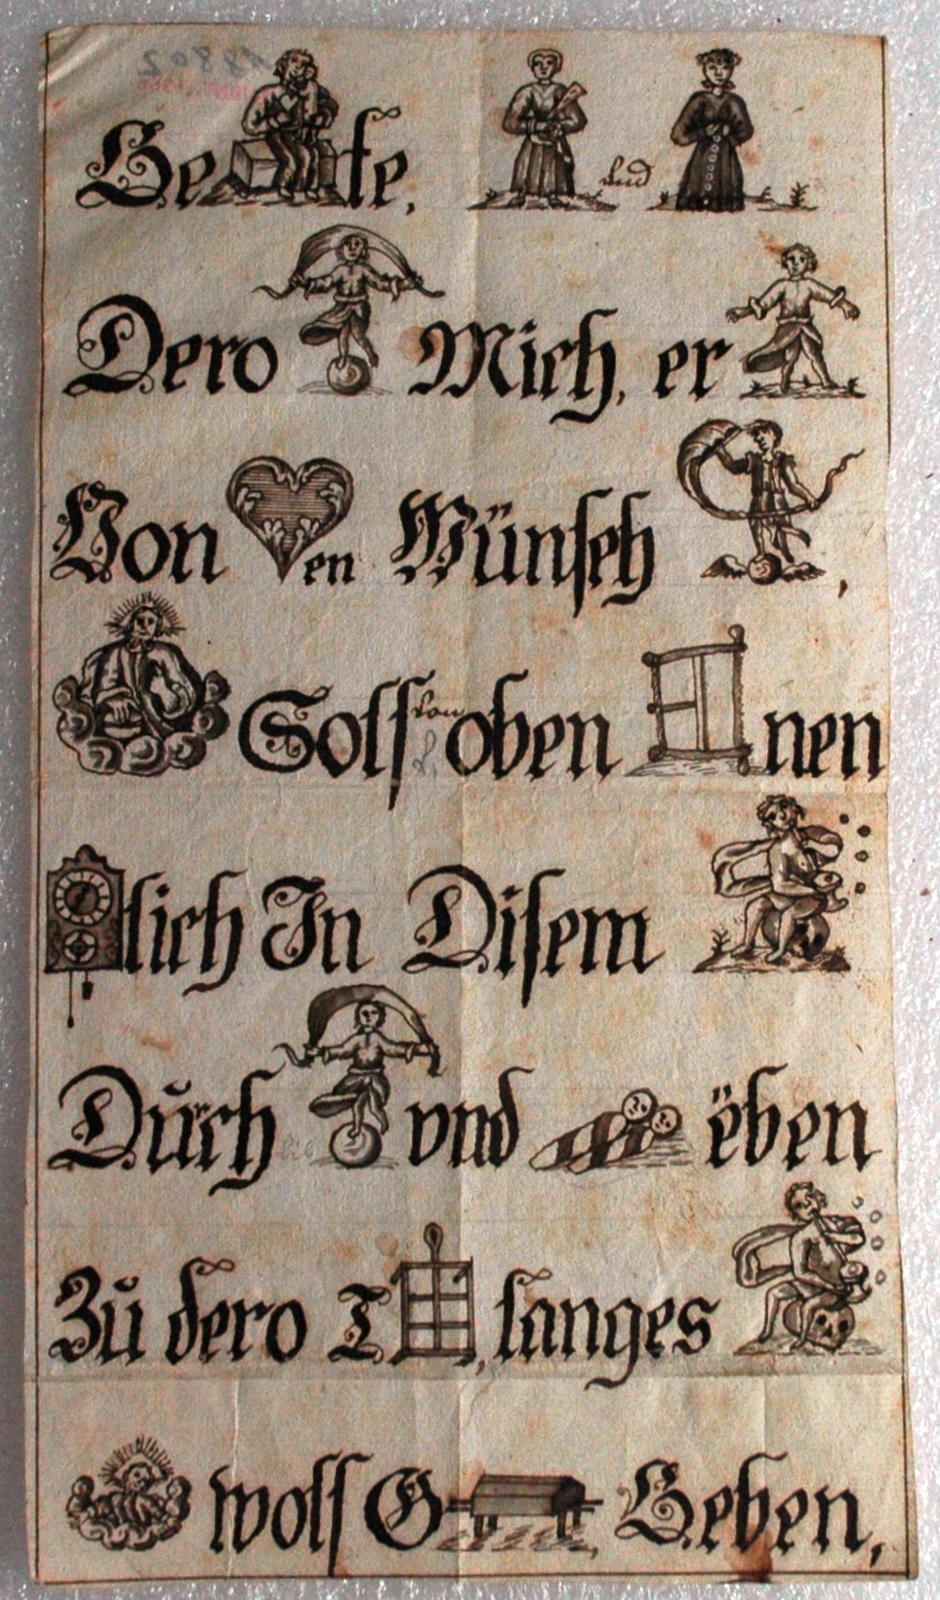 19802
Ge te, und
Dero Mich, er
Von en Wünsch ,
Soll von oben nen
lich In Disem
Dürch vnd ëben
Zü dero T , langes
woll G Geben,